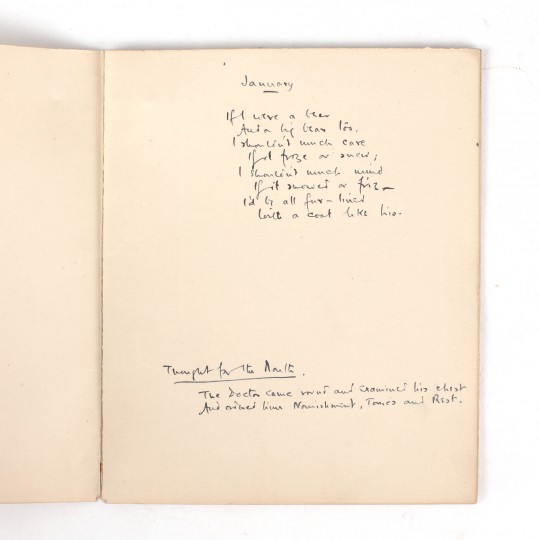 January
If I were a bear
And a big bear too,
I shouldn't much care
If it froze or snew;
I shouldn't much mind
If it snowed or friz—
I'd be all fur-lined
With a coat like his.
Thought for the Month.
The Doctor came round and examined his chest
And ordered him Nourishment, Tonics and Rest.